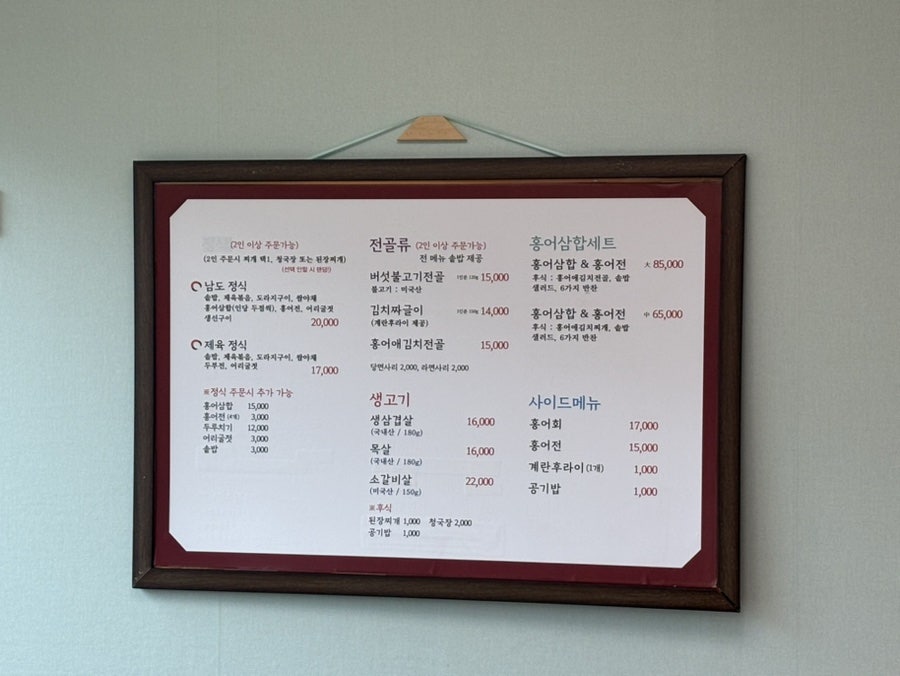 정식 (2인 이상 주문가능)
(2인 주문시 찌개 택1, 청국장 또는 된장찌개)
(선택 안할 시 랜덤)
남도 정식
솥밥, 제육볶음, 도라지구이, 쌈야채
홍어삼합(인당 두점씩), 홍어전, 어리굴젓
생선구이
20,000
제육 정식
솥밥, 제육볶음, 도라지구이, 쌈야채
두부전, 어리굴젓
17,000
※정식 주문시 추가 가능
홍어삼합 15,000
홍어전 (4개) 3,000
두루치기 12,000
어리굴젓 3,000
솥밥 3,000
전골류 (2인 이상 주문가능)
전 메뉴 솥밥 제공
버섯불고기전골 15,000
불고기 : 미국산
김치짜글이 14,000
(계란후라이 제공)
홍어애김치전골 15,000
당면사리 2,000, 라면사리 2,000
생고기
생삼겹살 16,000
(국내산 / 180g)
목살 16,000
(국내산 / 180g)
소갈비살 22,000
(미국산 / 150g)
※후식
된장찌개 1,000 청국장 2,000
공기밥 1,000
홍어삼합세트
홍어삼합 & 홍어전 大 85,000
후식 : 홍어애김치전골, 솥밥
샐러드, 6가지 반찬
홍어삼합 & 홍어전 中 65,000
후식 : 홍어애김치찌개, 솥밥
샐러드, 6가지 반찬
사이드메뉴
홍어회 17,000
홍어전 15,000
계란후라이 (1개) 1,000
공기밥 1,000